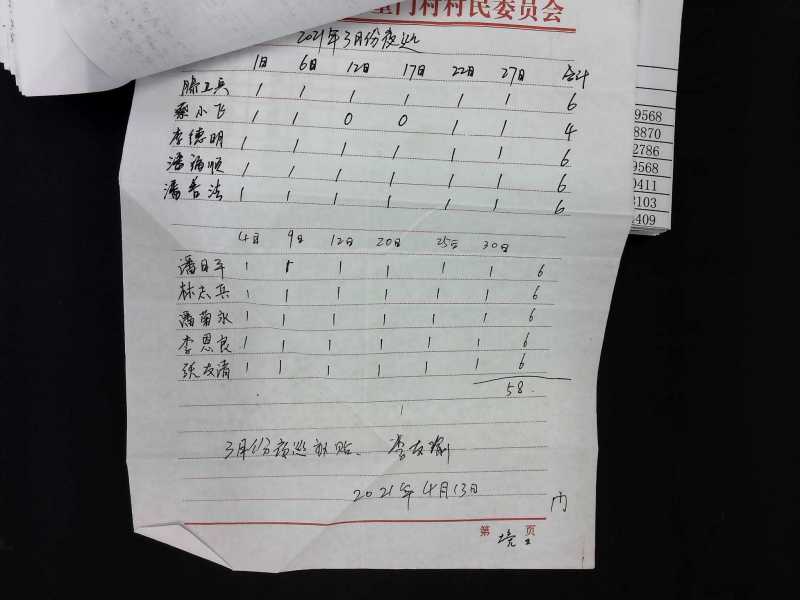 门村村民委员会
2021年3月份夜巡
1日 6日 12日 17日 22日 27日 合计
滕卫兵 1 1 1 1 1 1 6
蔡小飞 1 1 0 0 1 1 4
李德明 1 1 1 1 1 1 6
潘福顺 1 1 1 1 1 1 6
潘善法 1 1 1 1 1 1 6
4日 9日 12日 20日 25日 30日
潘日平 1 1 1 1 1 1 6
林志兵 1 1 1 1 1 1 6
潘菊永 1 1 1 1 1 1 6
李恩良 1 1 1 1 1 1 6
张友清 1 1 1 1 1 1 6
58.
3月份夜巡补贴.
2021年4月13日
第 页
9568
8870
2786
9568
0411
3103
2409